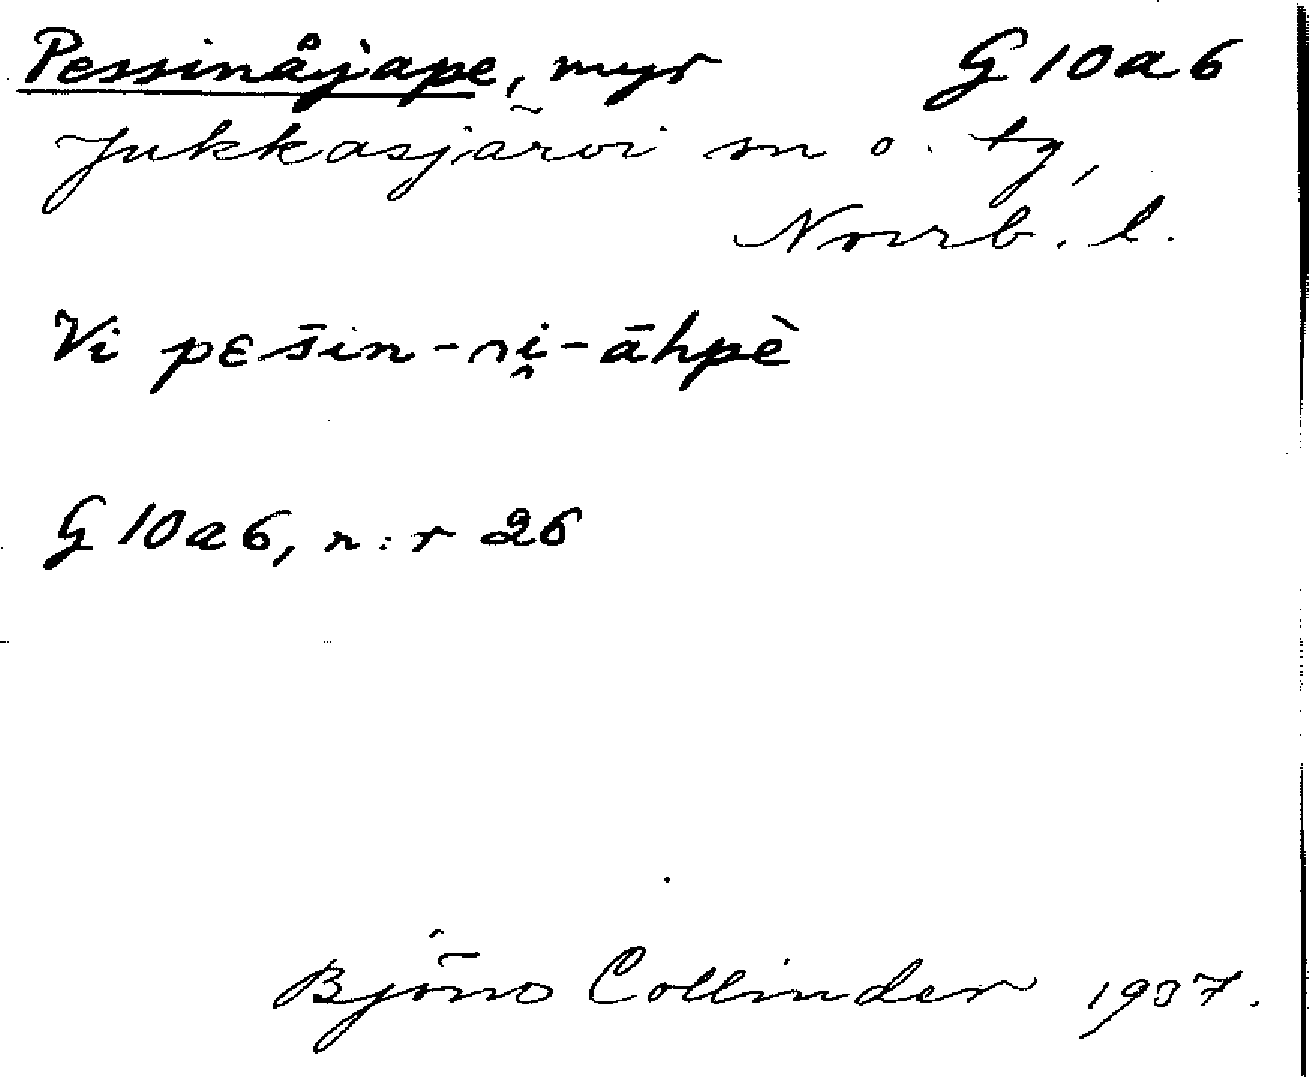 Pessinåjape, myr G 10 a 6
Jukkasjärvi sn o. tg,
Norrb. l.
Vi pɛšin-ɹi̯-āhpè
G 10 a 6, n:r 26
Björn Collinder 1937.